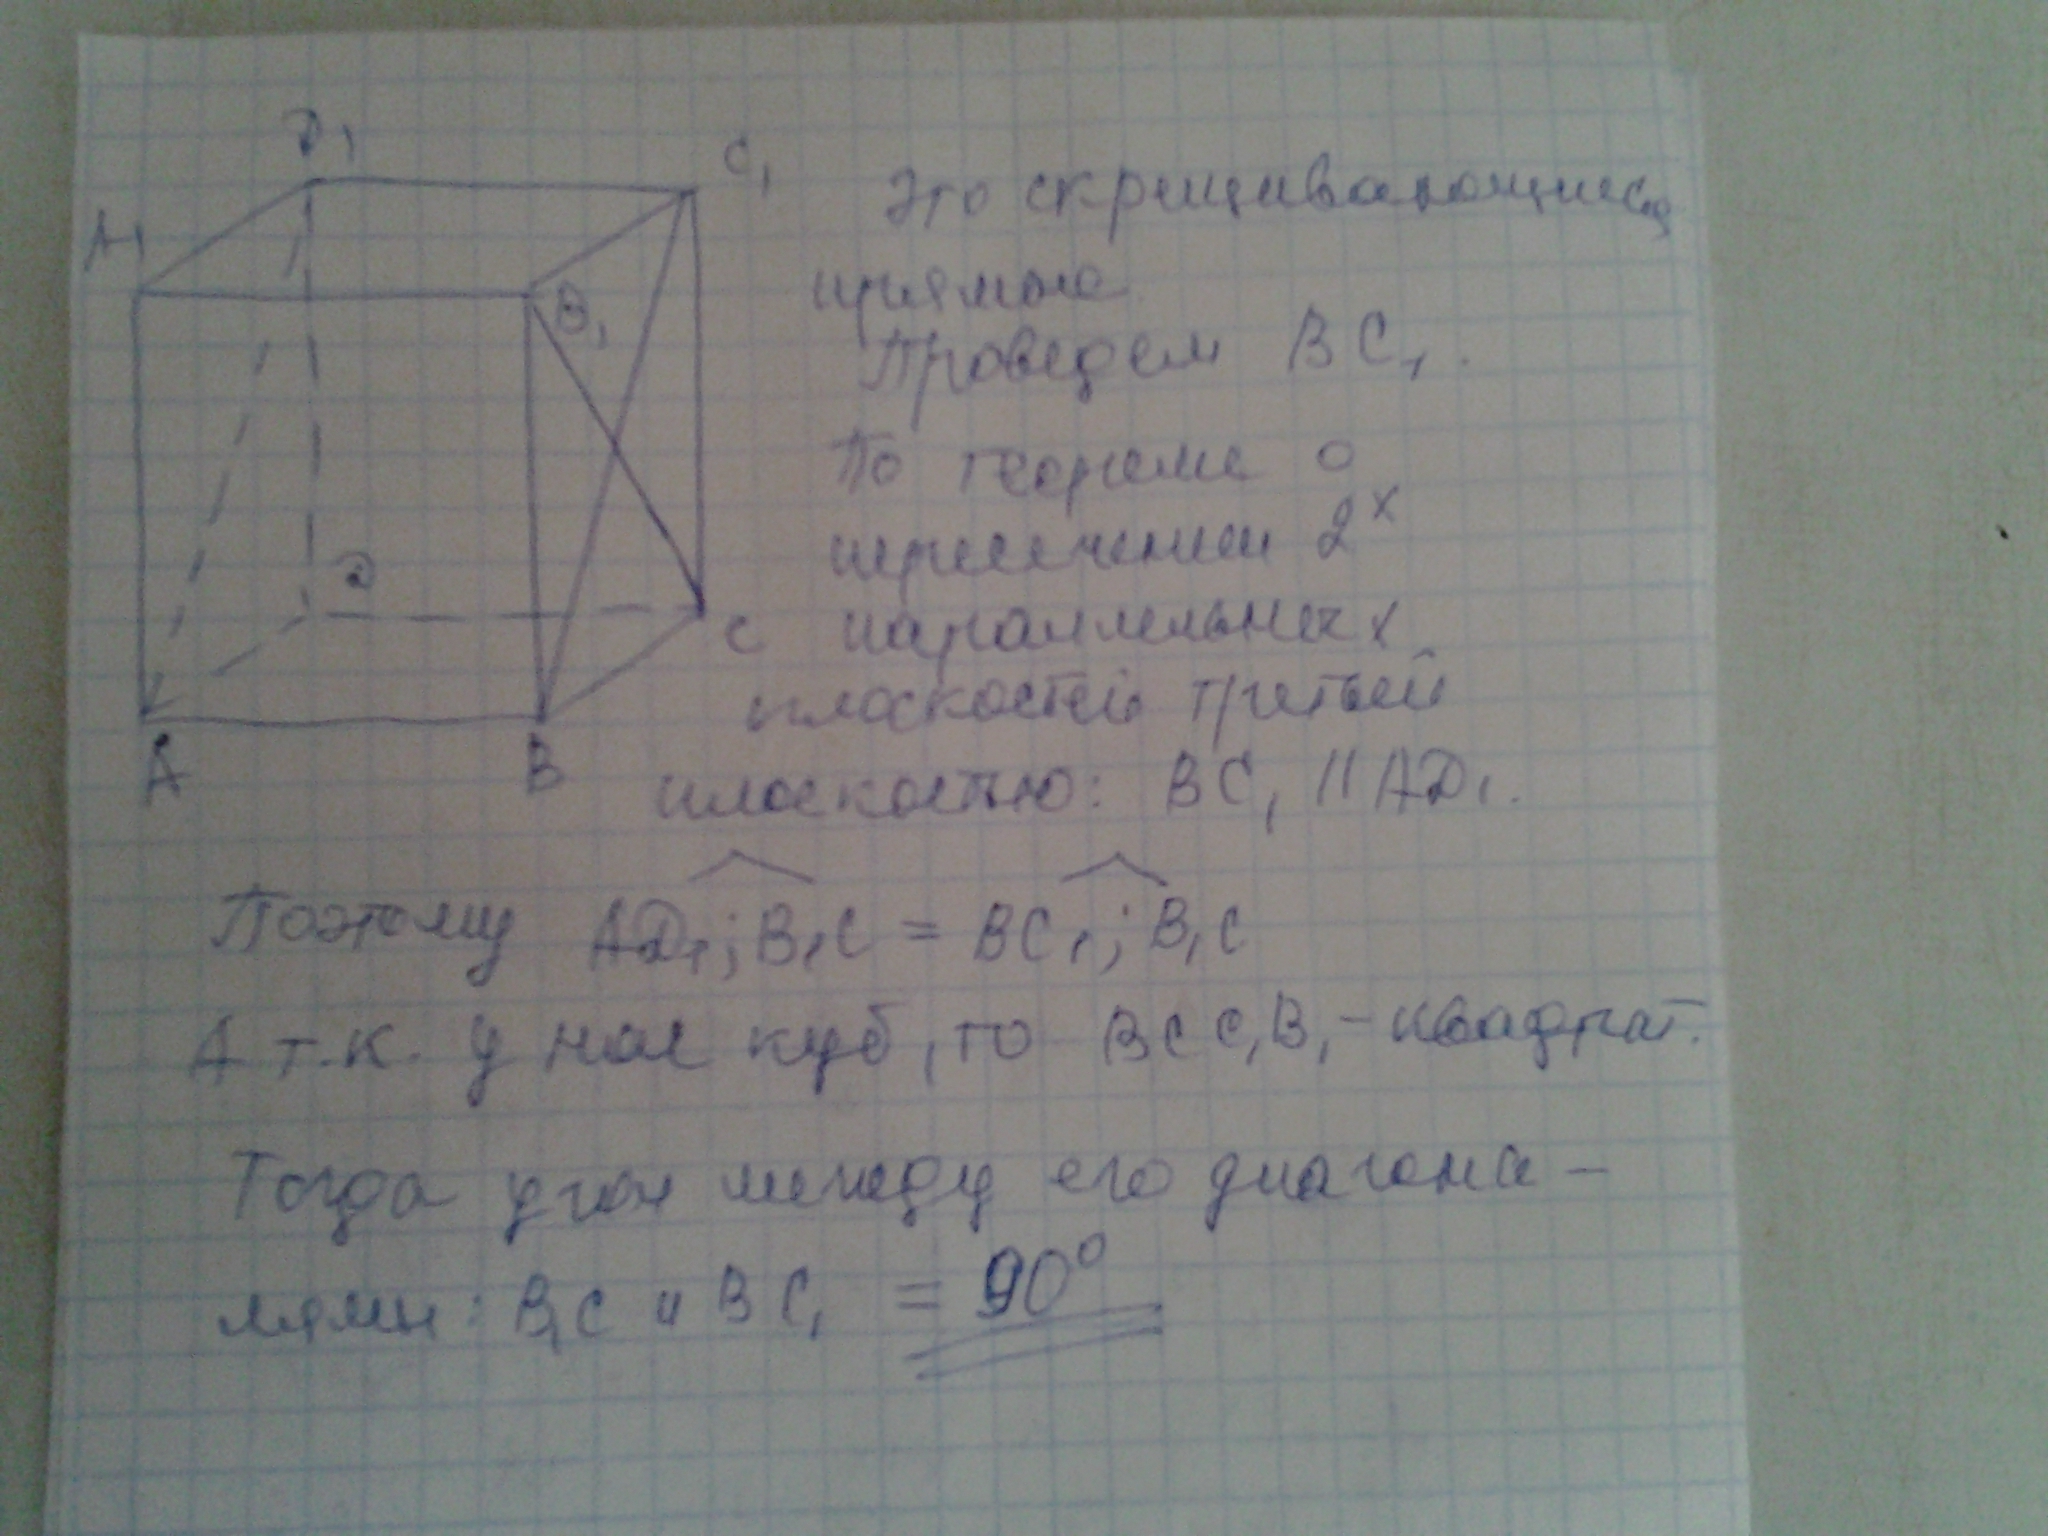 D₁
C₁
A₁
B₁
D
C
A
B
Это скрещивающиеся
прямые
Проведем BC₁.
По теореме о
пересечении 2ˣ
параллельных
плоскостей третьей
плоскостью: BC₁ || AD₁.
Поэтому AD₁; B₁C = BC₁; B₁C
А т.к. у нас куб, то BCC₁B₁ – квадрат.
Тогда угол между его диагона –
лями: B₁C и BC₁ = 90°